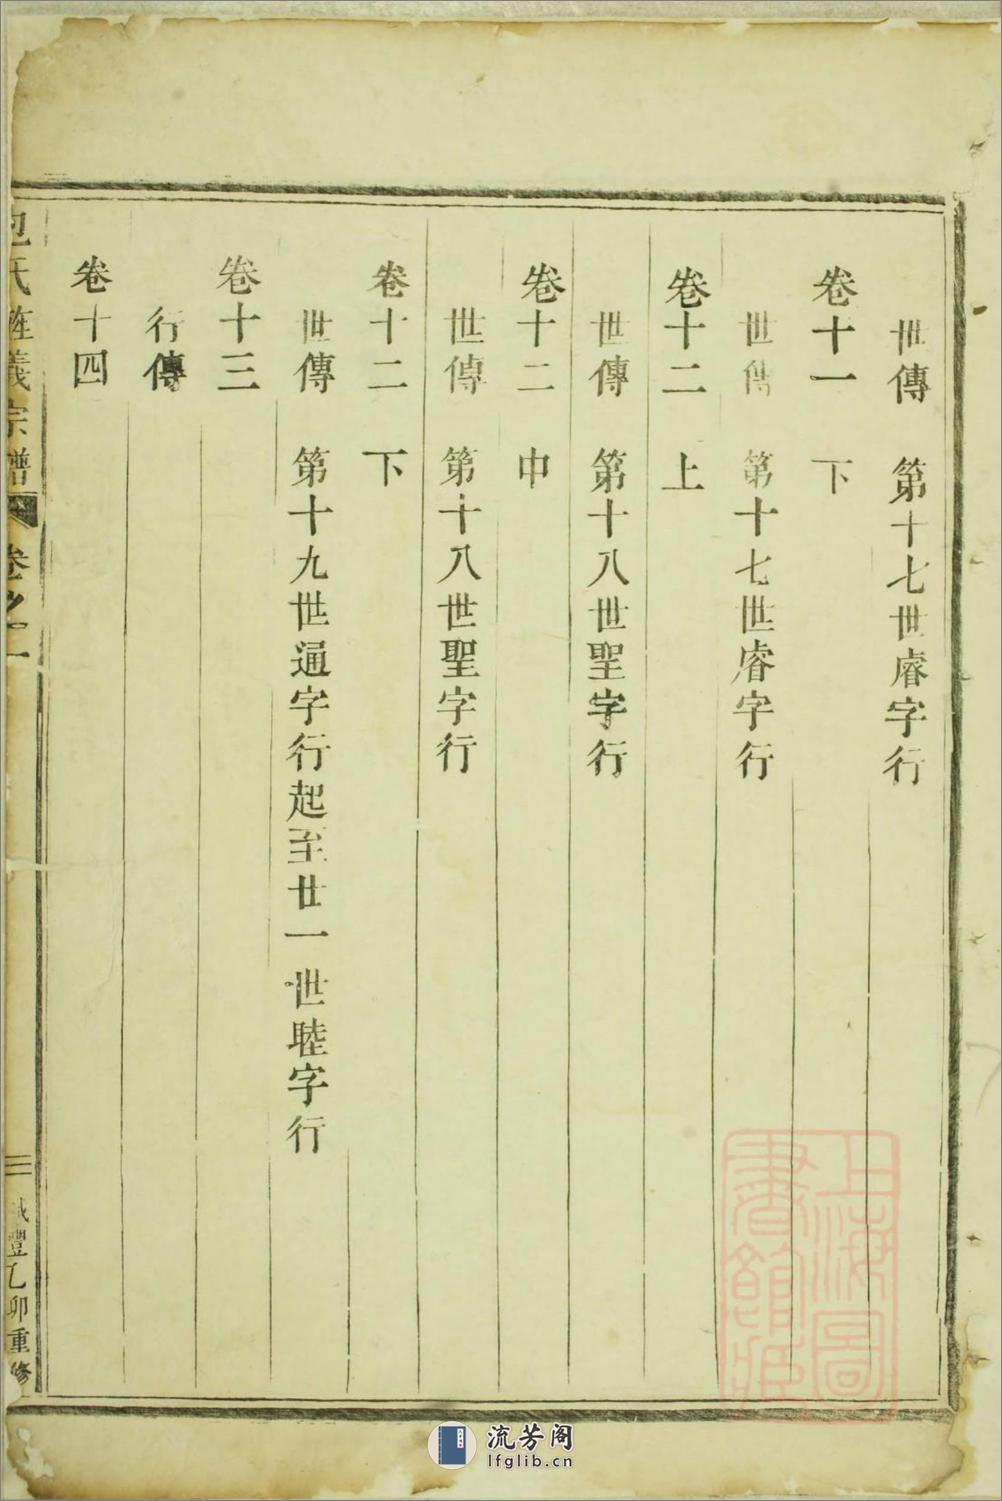 世傳　第十七世睿字行
卷十一　下
世傳　第十七世睿字行
卷十二　上
世傳　第十八世聖字行
卷十二　中
世傳　第十八世聖字行
卷十二　下
世傳　第十九世通字行起至廿一世睦字行
卷十三
行傳
卷十四
包氏旌義宗譜　卷之一　三　咸豐乙卯重修
上海圖
書館藏
流芳阁
lfglib.cn